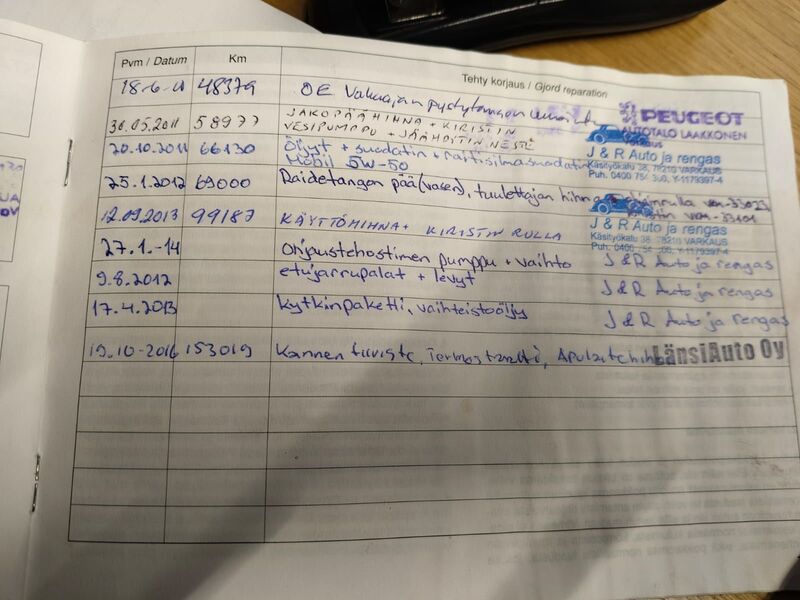 Pvm / Datum Km Tehty korjaus / Gjord reparation
48379 OE Vakaajan
PEUGEOT
AUTOTALO LAAKKONEN
30.05.2011 58977 JAKOPÄÄHIHNA + KIRISTIN
VESIPUMPPU + JÄÄHDYTINNESTE
20.10.2011 66130 Öljyt + suodatin + raitisilmasuodatin
Mobil 5W-50
J & R Auto ja rengas
Käsityökatu 38, 78210 VARKAUS
25.1.2012 69000 Raidetangon pää (vasen), tuulettajan hihna
12.09.2013 99187 KÄYTTÖHIHNA + KIRISTIN RULLA
J & R Auto ja rengas
Käsityökatu 38, 78210 VARKAUS
27.1.-14 Ohjaustehostimen pumppu + vaihto J & R Auto ja rengas
9.8.2012 etujarrupalat + levyt J & R Auto ja rengas
17.4.2013 Kytkinpaketti, vaihteistoöljy J & R Auto ja rengas
19.10-2016 153019 Kannen tiiviste, Termostaatti, LänsiAuto Oy